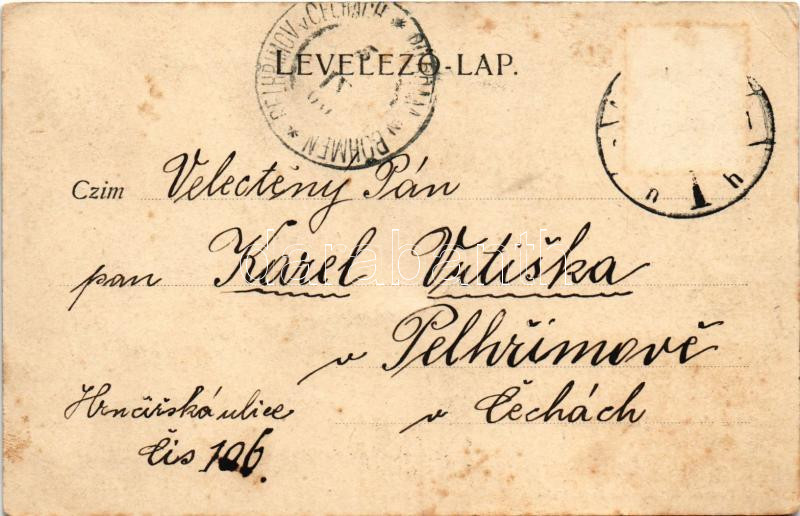 LEVELEZŐ-LAP.
PELHŘIMOV v ČECHÁCH * PILGRAM in BÖHMEN *
Czim Velectěny Pán
pan Karel Vrtiška
v Pelhřimově
v Čechách
Hrnčířská ulice
čis 106.
darabanth